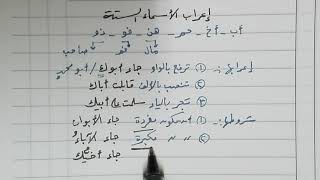 إعراب الأسماء الستة
أب - أخ - حم - هن - فو - ذو
فم صاحب
إعرابها:- ① ترفع بالواو جاء أبوك / أبو محمد
② تنصب بالألف قابلت أباك
③ تجر بالياء سلمت على أبيك
شروطها:- ① أن تكون مفردة جاء الأبوان
② " " مكبرة جاء الآباء
جاء أخيك